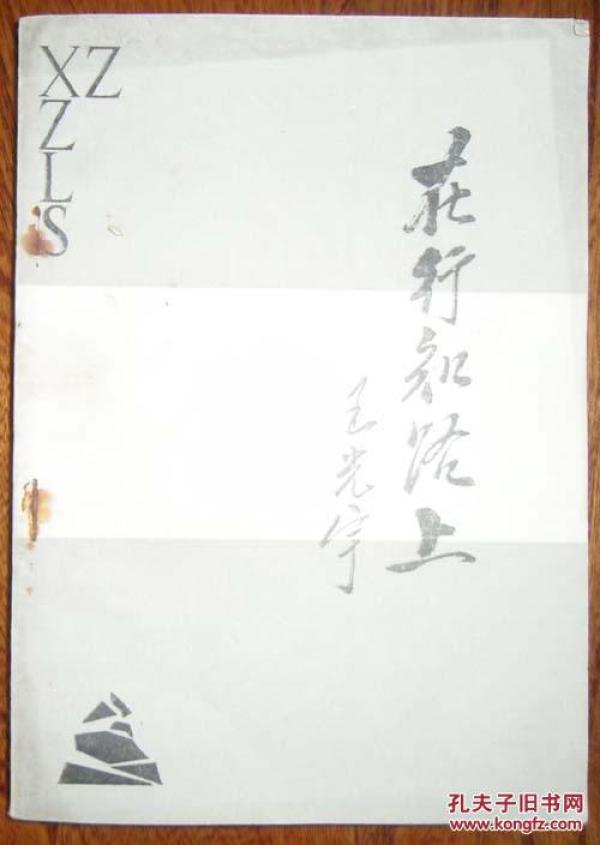 XZ
Z
L
S
在行知路上
王光宇
孔夫子旧书网
www.kongfz.com